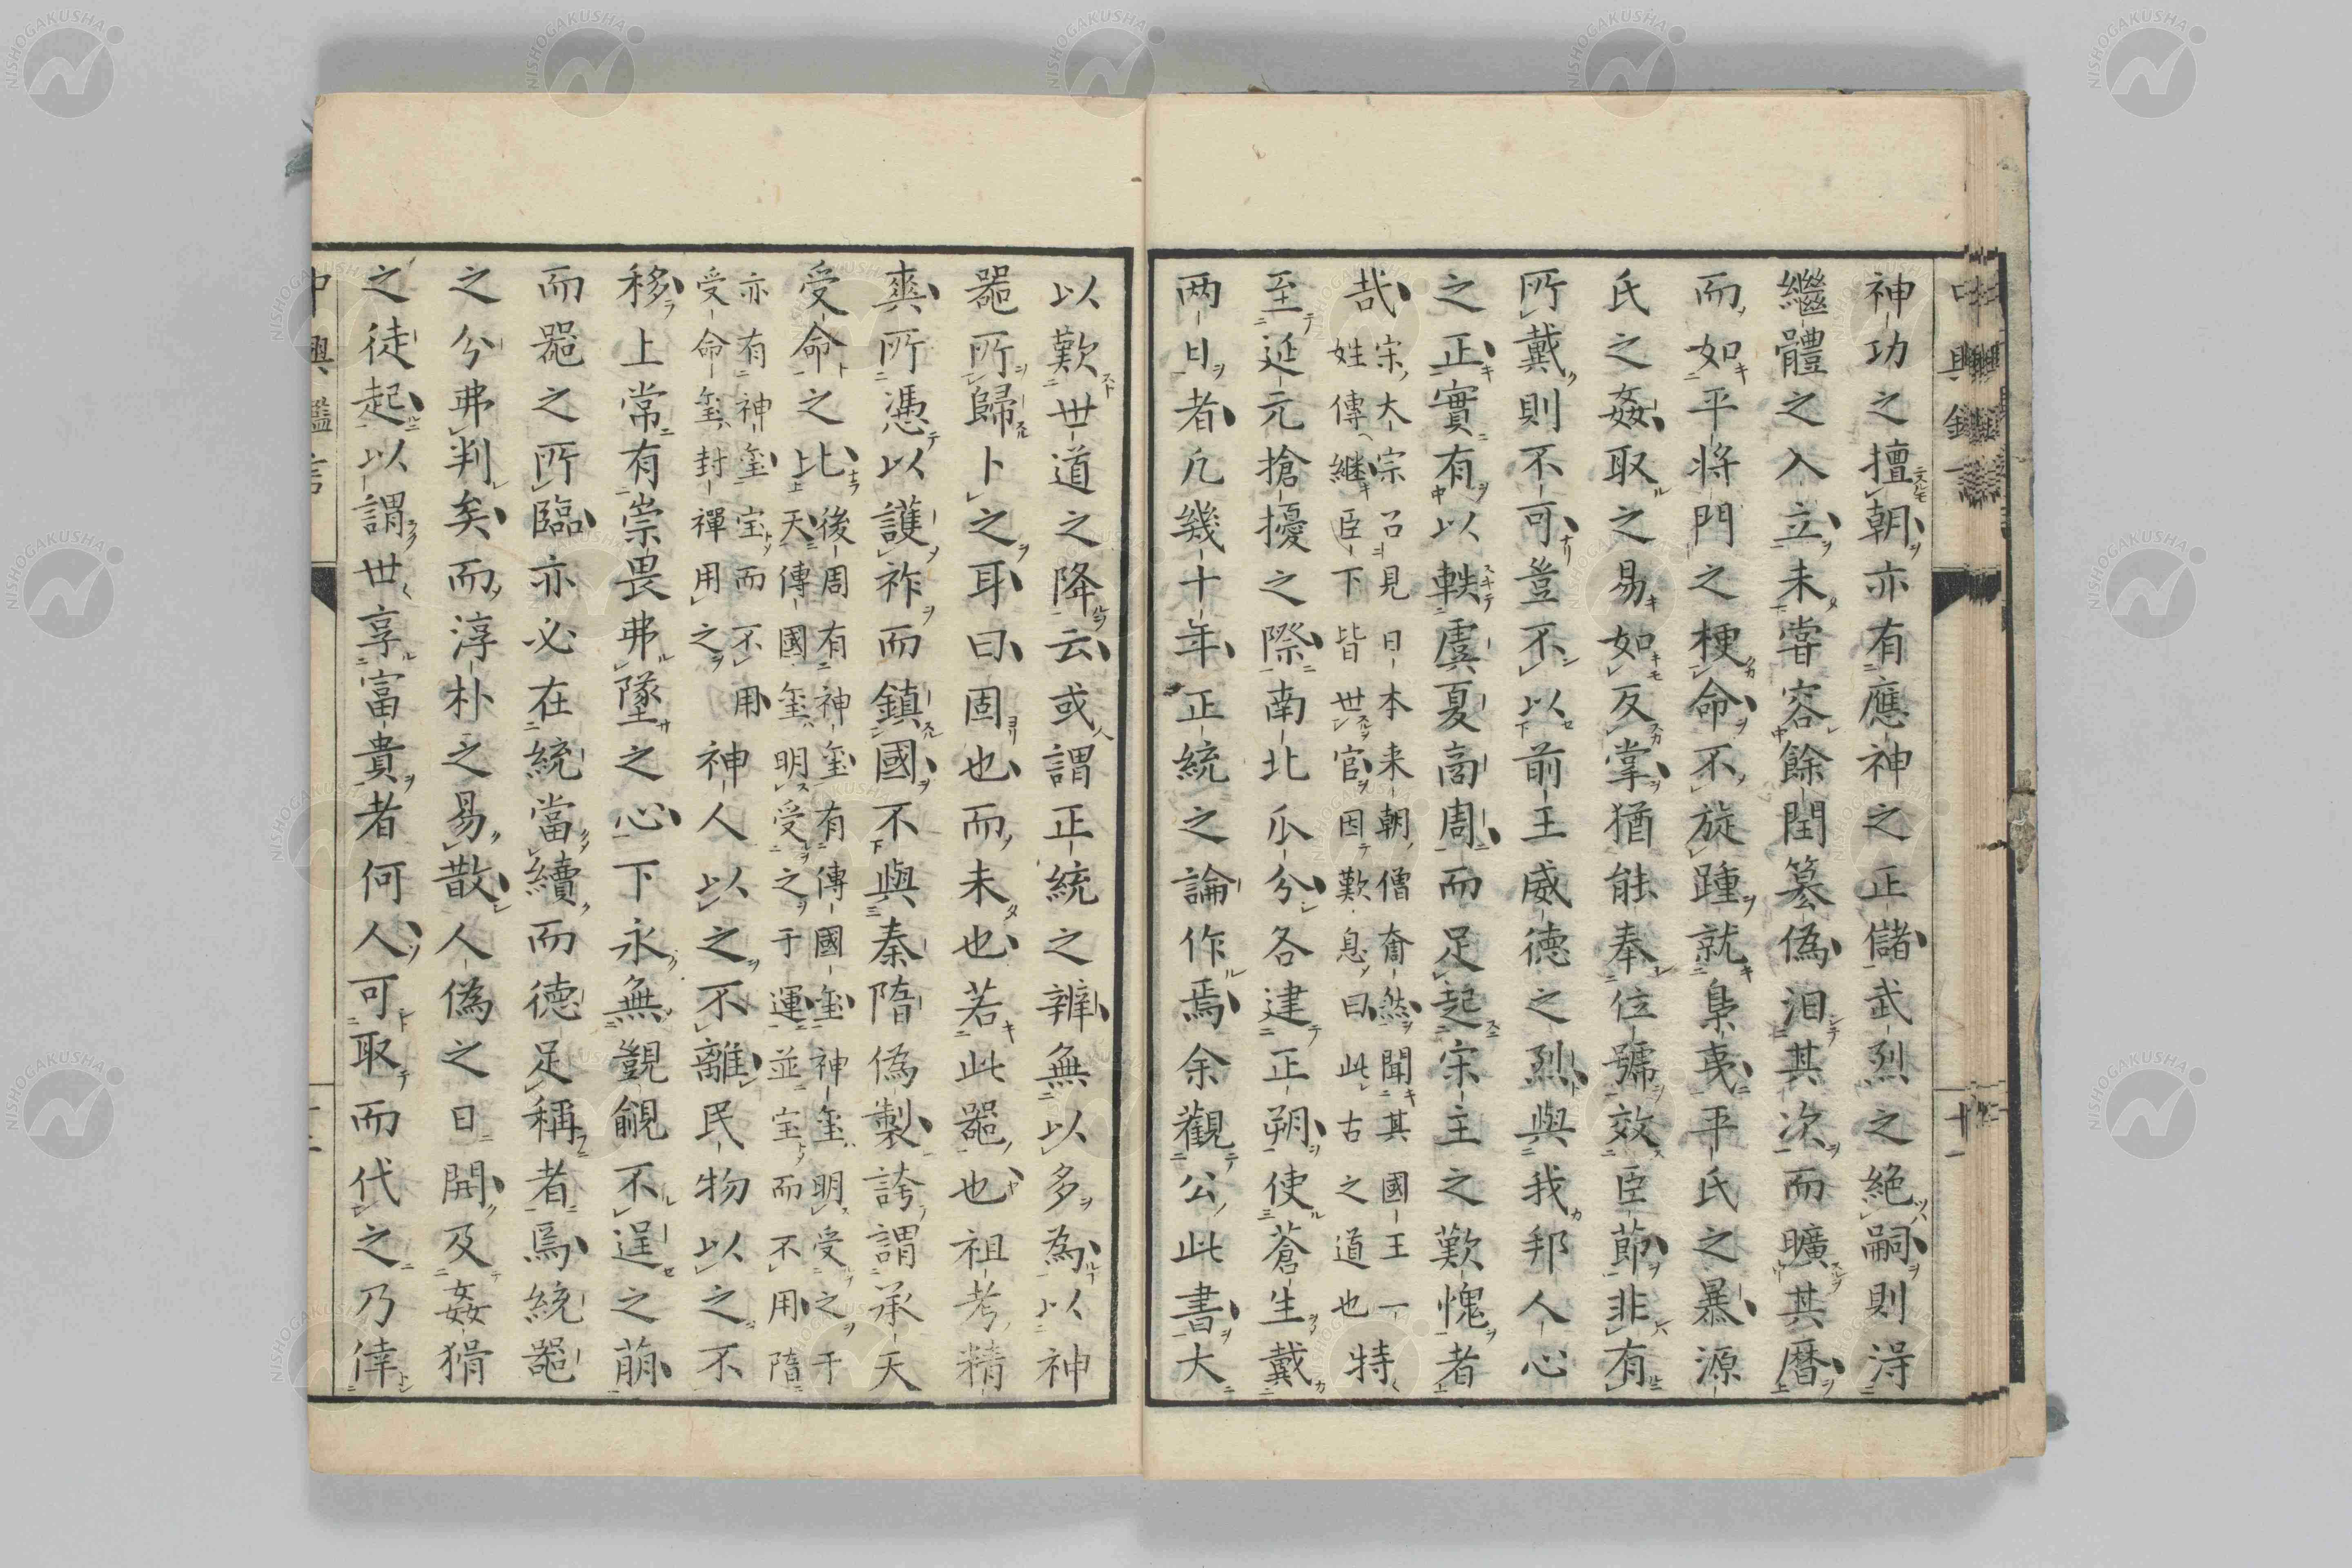 神功之擅朝亦有應神之正儲武烈之絶嗣則得
繼體之入立未甞容餘閏簒偽汨其次而曠其暦
而如平將門之梗命不旋踵就梟夷平氏之暴源
氏之姦取之易如反掌猶能奉位號效臣節非有
所戴則不可豈不以前王威德之烈與我邦人心
之正實有以軼虞夏啇周而足起宋主之歎愧者
哉
宋大宗召見日本来朝僧奝然聞其國王一
姓傳繼臣下皆世官因歎息曰此古之道也
特
至延元搶擾之際南北瓜分各建正朔使蒼生戴
两日者凡幾十年正統之論作焉余觀公此書大
以歎世道之降云或謂正統之辨無以多為以神
噐所歸卜之耳曰固也而未也若此噐也祖考精
爽所憑以護祚而鎮國不與秦隋偽製誇謂承天
受命之比
後周有神玺有傳國玺神玺明受之于
天傳國玺明受之于運並宝而不用隋
亦有神玺宝而不用
受命玺封禪用之
神人以之不離民物以之不
移上常有崇畏弗墜之心下永無覬覦不逞之萠
而噐之所臨亦必在統當續而德足稱者爲統噐
之分弗判矣而淳朴之易散人偽之日開及姦猾
之徒起以謂世享富貴者何人可取而代之乃倖
中興鑑言